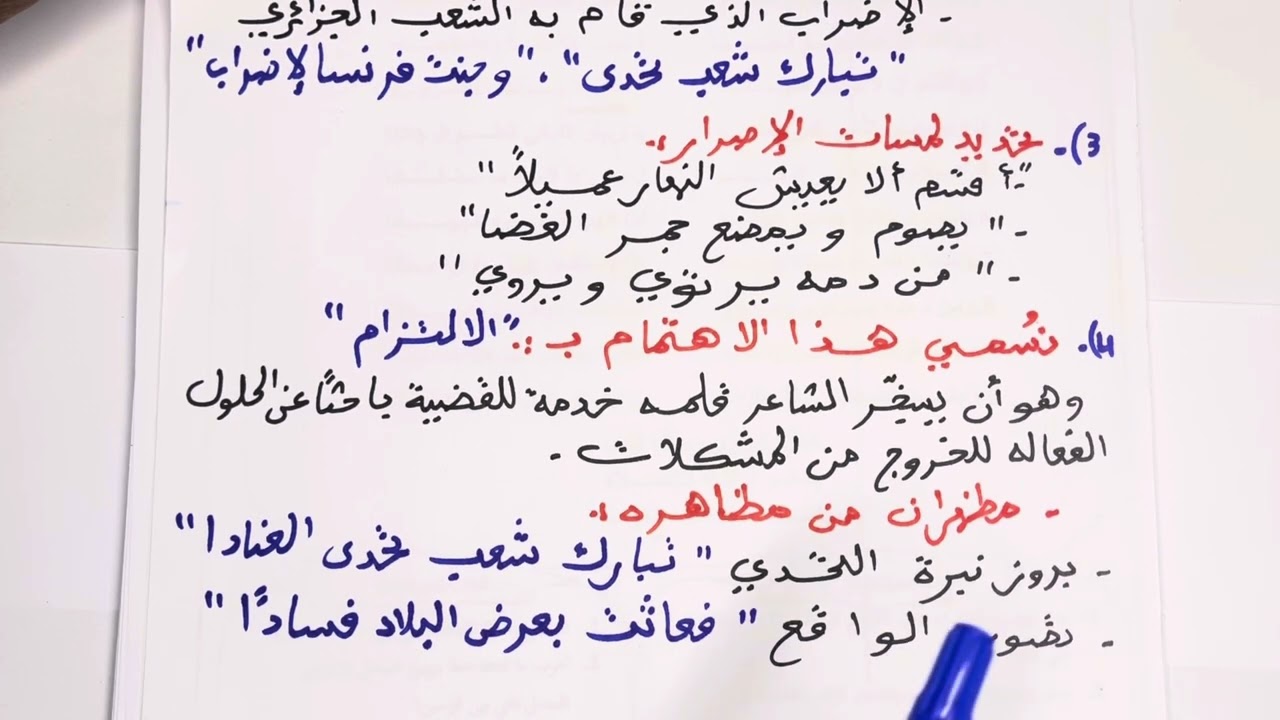 - الإضراب الذي قام به الشعب الجزائري
"تبارك شعب تحدى"، "وجنت فرنسا لإضراب"
3). تحديد لمسات الإصرار:
- "أقسم ألا يعيش النهار عميلاً"
- "يصوم و يمضغ جمر الغضا"
- "من دمه يرتوي ويروي"
4). نُسمي هذا الاهتمام بـ: "الالتزام"
وهو أن يسخّر الشاعر قلمه خدمة للقضية باحثاً عن الحلول
الفعاله للخروج من المشكلات.
- مظهران من مظاهره:
- بروز نبرة التحدي "تبارك شعب تحدى العنادا"
- تصوير الواقع "فعاثت بعرض البلاد فسادًا"